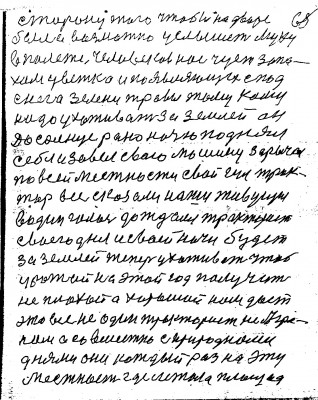 сторону того чтобы на дворе 68
было возможно услышет муху
в полете, человеков нос чует запа-
хом цветка и появляющихся спод
снега зелени травы тому кому
надо ухотиват за землей он
до солнце рано ночю поднял
себя и завел свою машину зарычал
по всей местности свой ени трак-
тор все сказали нахи живущи
водин голос дождалис тракторист
своего дня и своей ночи будет
за землей теперь ухотиват чтоб
урожай на этой год получит
не плохой а хороший нам даст
это все не один тракторист не
ном а совместно с природными
днями они каждый раз на эту
местност где летала площад